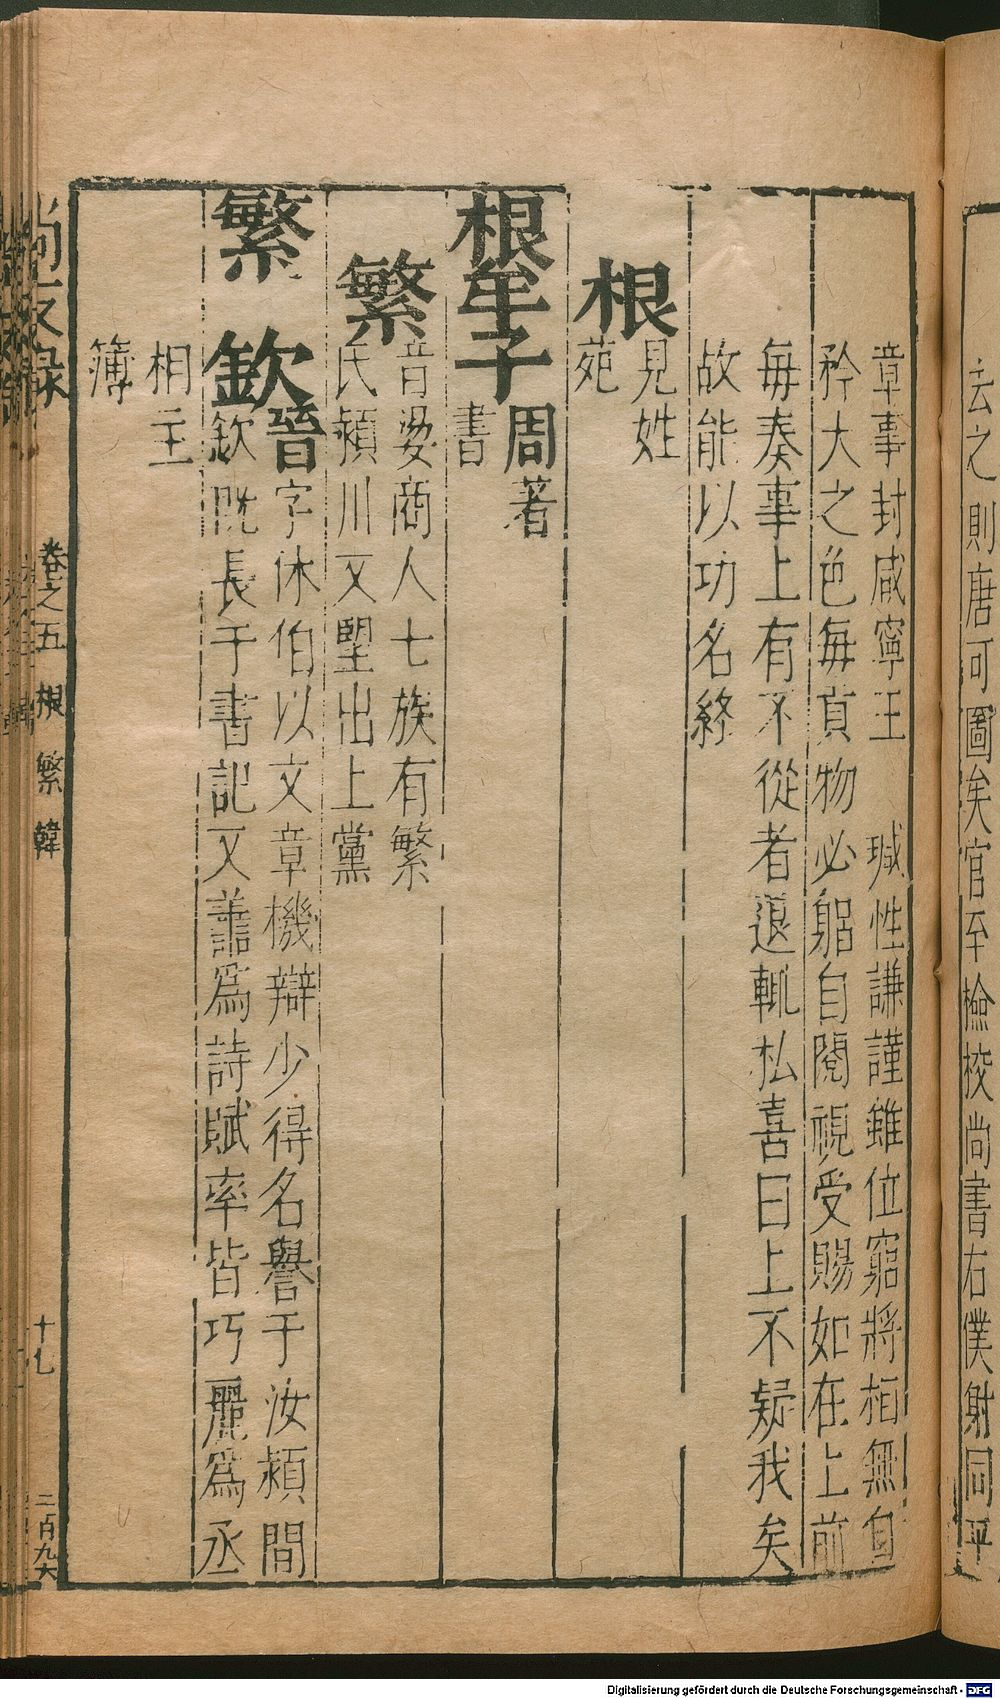 去之則唐可圖矣官至檢校尚書右僕射同平
章事封咸寧王　瑊性謙謹雖位窮將相無自
矜大之色每貢物必躬自閱視受賜如在上前
每奏事上有不從者退輒私喜曰上不疑我矣
故能以功名終
根
見姓
苑
根牟子
周著
書
繁
音婆商人七族有繁
氏潁川又望出上黨
繁
欽
晉字休伯以文章機辯少得名譽于汝潁間
欽既長于書記又善爲詩賦率皆巧麗爲丞
相主
簿
尚友錄　卷之五　根　繁　韓　十七　二百九六
Digitalisierung gefördert durch die Deutsche Forschungsgemeinschaft - DFG